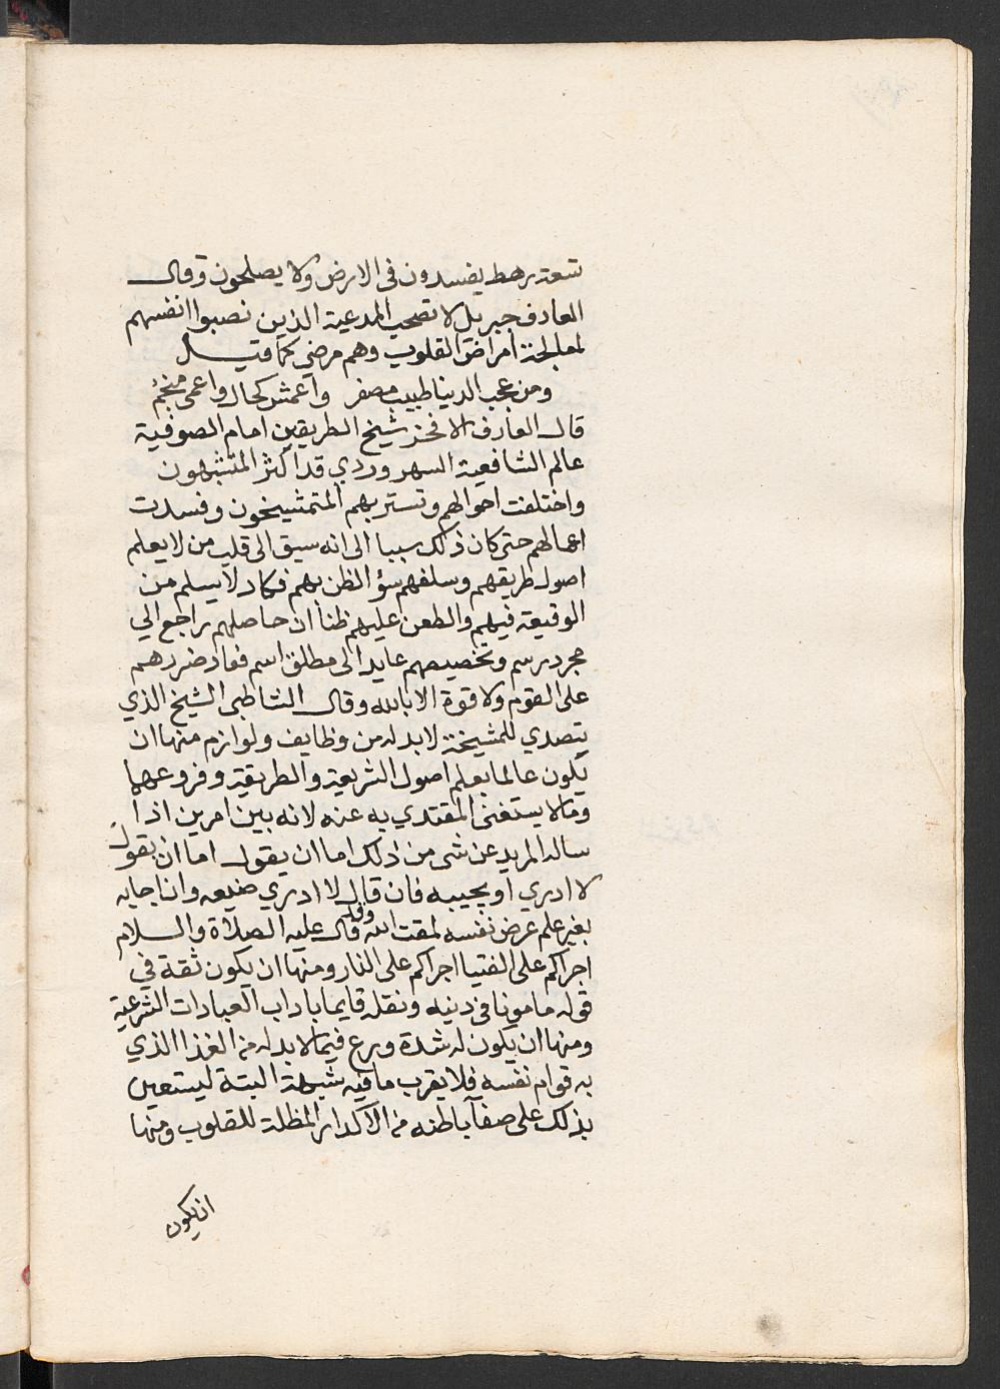 تسعة رهط يفسدون في الارض ولا يصلحون وقال
العارف جبريل لا تصحب المدعية الذين نصبوا انفسهم
لمعالجة امراض القلوب وهم مرضي كما قيل
ومن عجب الدنيا طبيب مصفر واعمش كحال واعمى منجم
قال العارف الافخر شيخ الطريقين امام الصوفية
عالم الشافعية السهروردي قد اكثر المتشبهون
واختلفت احوالهم وتستر بهم المتمشيخون وفسدت
اعمالهم حتى كان ذلك سببا الى انه سبق الى قلب من لا يعلم
اصول طريقهم وسلفهم سؤ الظن بهم فكاد لا يسلم من
الوقيعة فيهم والطعن عليهم ظنا ان حاصلهم راجع الي
مجرد رسم وتخصيصهم عايد الى مطلق اسم فعاد ضررهم
على القوم ولا قوة الا بالله وقال الشاطبى الشيخ الذي
يتصدي للمشيخة لا بد له من وظايف ولوازم منها ان
يكون عالما بعلم اصول الشريعة والطريقة وفروعهما
وما لا يستغنى المقتدي به عنه لانه بين امرين اذا
ساله المريد عن شى من ذلك اما ان يقول اما ان يقول
لا ادري او يجيبه فان قال لا ادري ضيعه وان اجابه
بغير علم عرض نفسه لمقت الله وقد قال عليه الصلاة والسلام
اجراكم على الفتيا اجراكم على النار ومنها ان يكون ثقة في
قوله مامونا في دينه ونقله قايما باداب العبادات الشرعية
ومنها ان يكون له شدة ورع فيما لا بد له من الغذا الذي
به قوام نفسه فلا يقرب ما فيه شبهة البتة ليستعين
بذلك على صفآ باطنه من الاكدار المظلة للقلوب ومنها
ان يكون